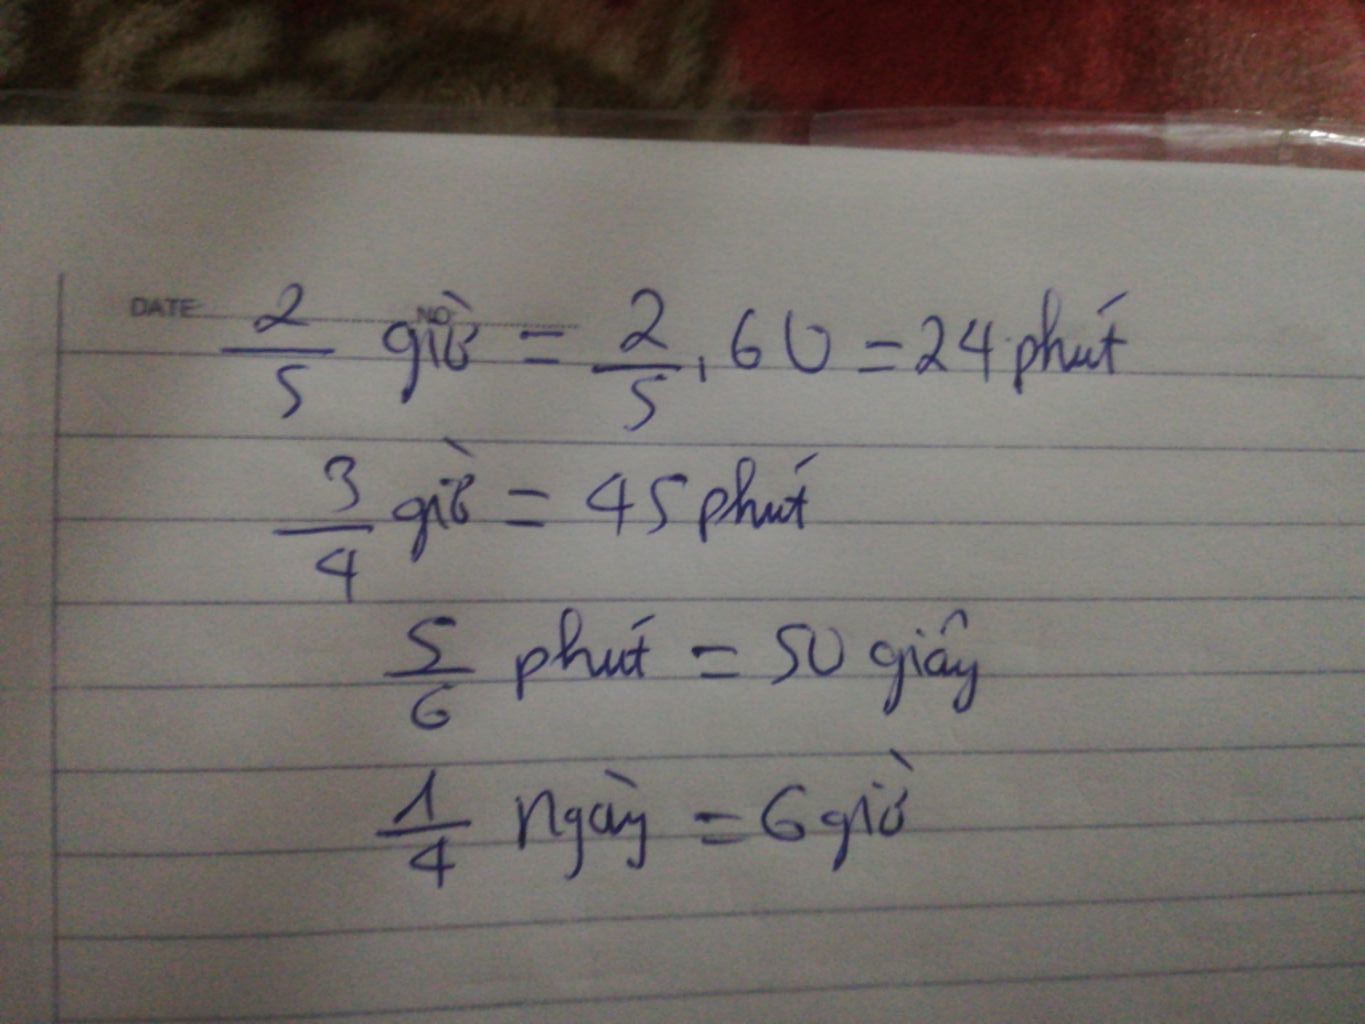 DATE NO
2/5 giờ = 2/5 . 60 = 24 phút
3/4 giờ = 45 phút
5/6 phút = 50 giây
1/4 ngày = 6 giờ